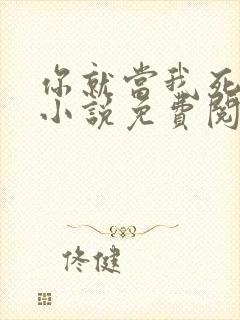 你就當我死
小說免費閱
佟健